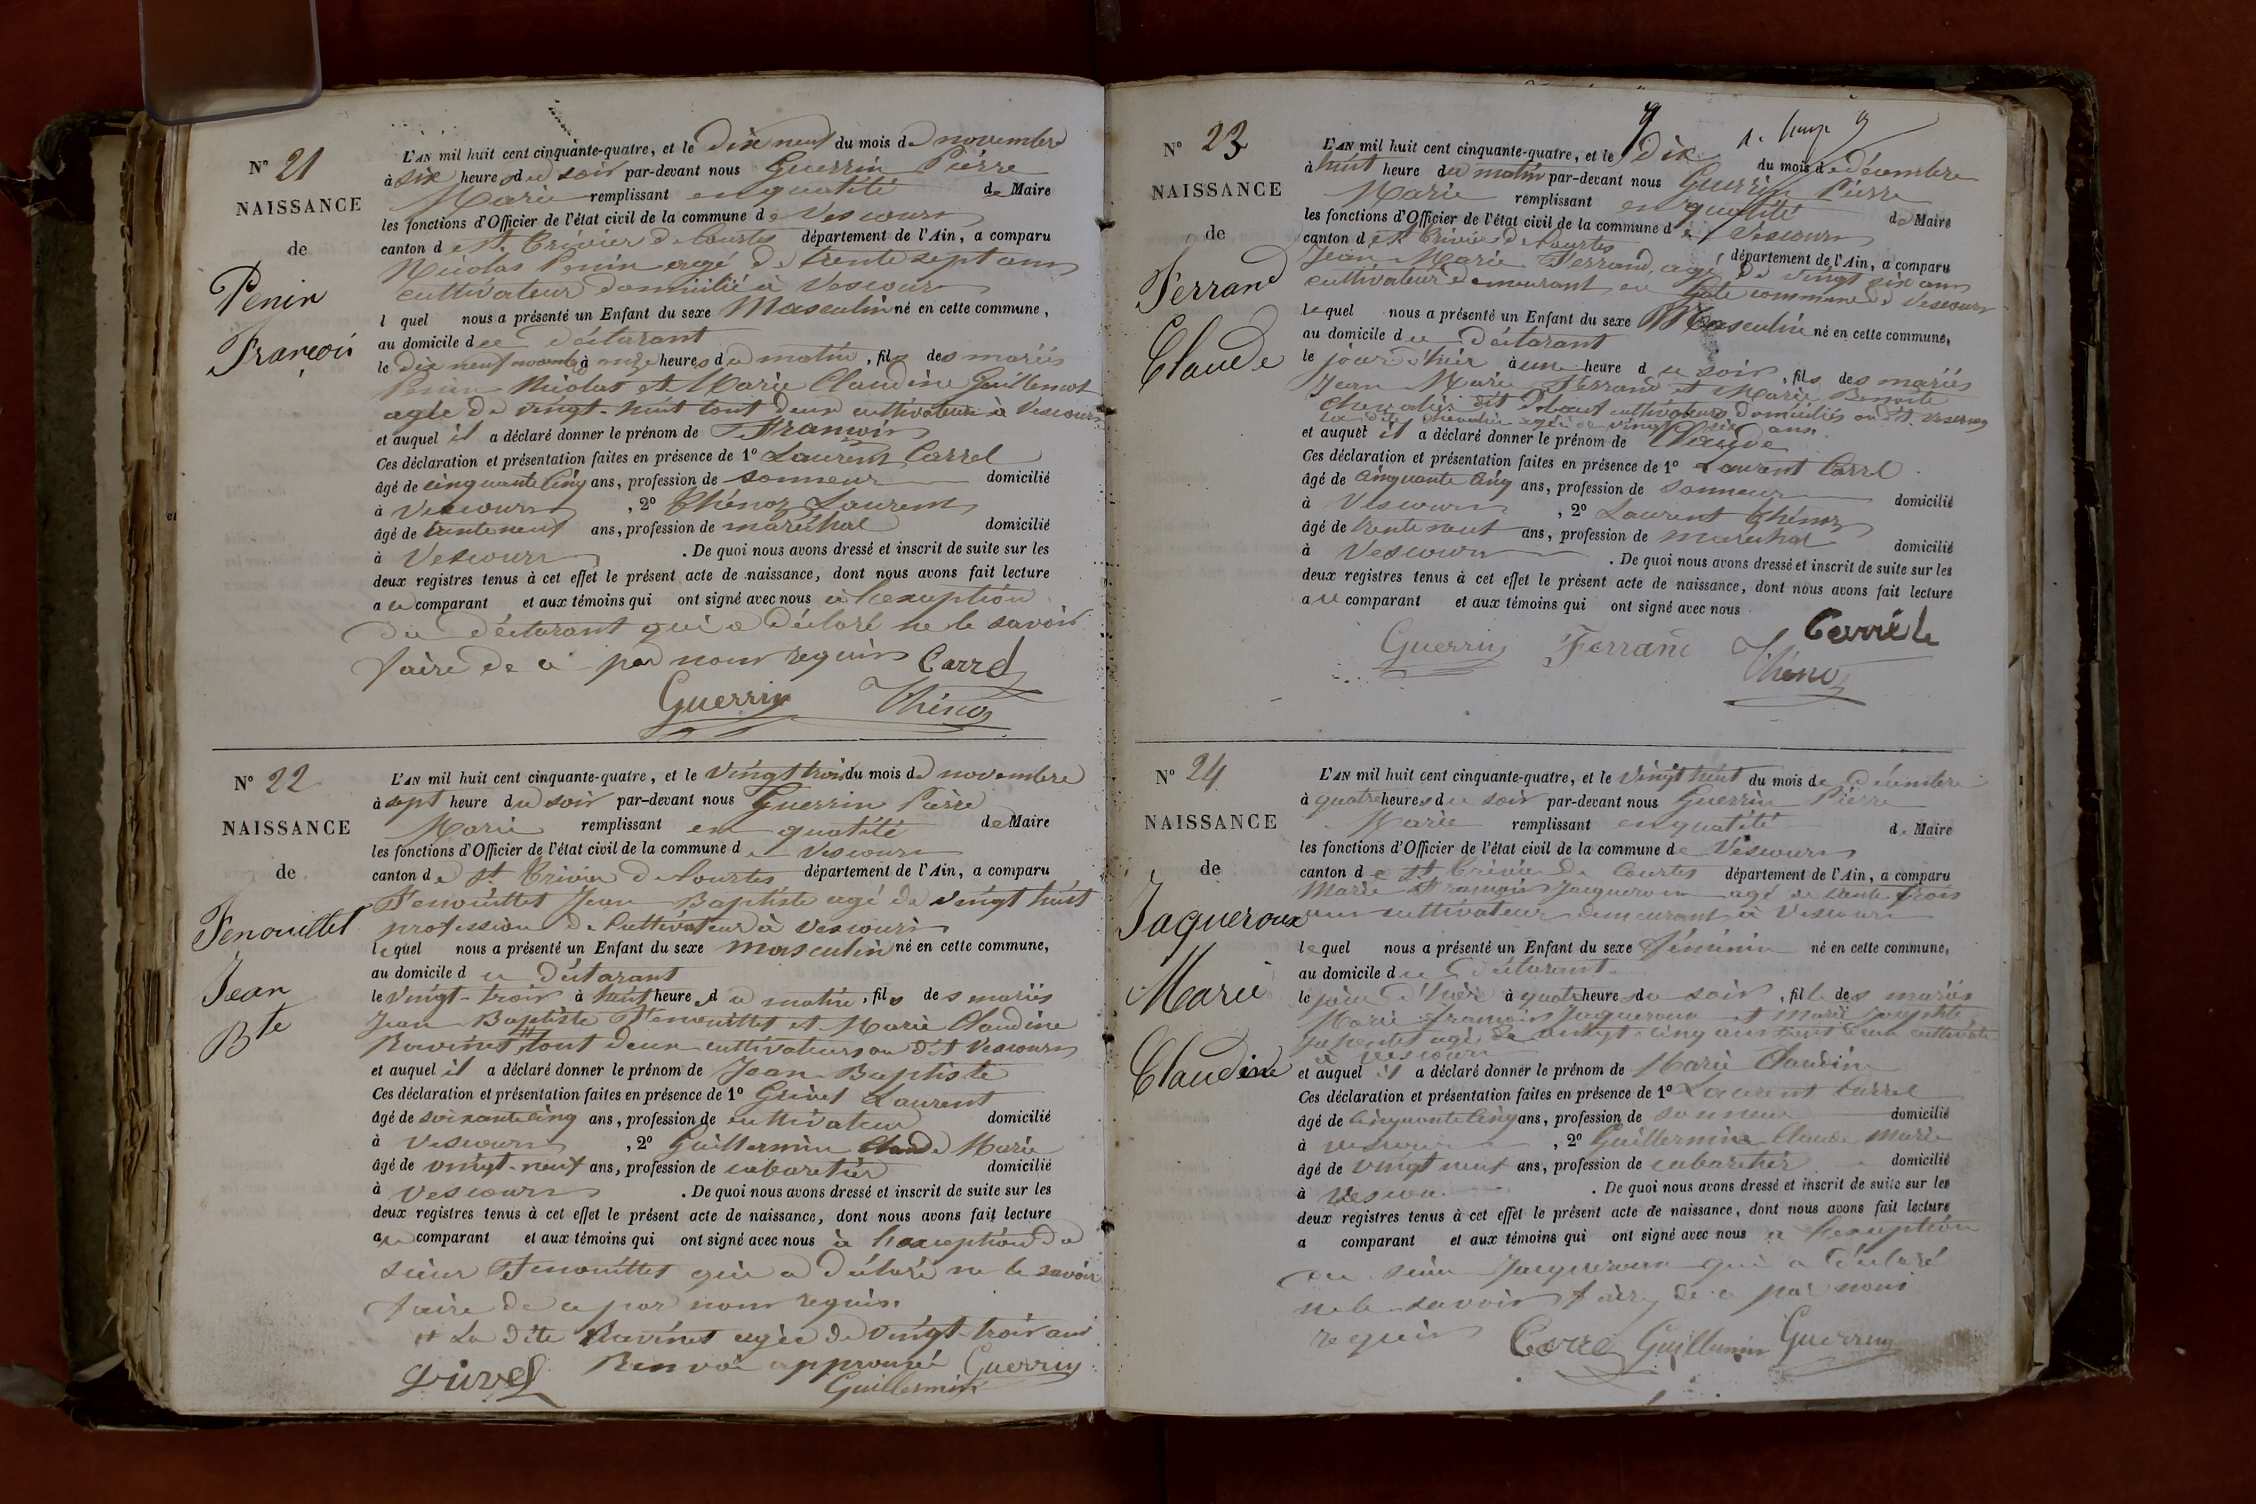 N° 21
NAISSANCE
de
Penin
François
L'AN mil huit cent cinquante-quatre, et le dix neuf du mois de novembre
à six heure du soir par-devant nous Guerrin Pierre
Marie remplissant en qualité de Maire
les fonctions d'Officier de l'état civil de la commune de Vescours
canton de St. Trivier de Courtes département de l'Ain, a comparu
Nicolas Penin agé de trente sept ans
cultivateur domicilié à Vescours
lequel nous a présenté un Enfant du sexe Masculin né en cette commune,
au domicile du déclarant
le dix neuf novembre à onze heures du matin, fils des mariés
Penin Nicolas et Marie Claudine Guillemot
agée de vingt-huit tout deux cultivateurs à Vescours
et auquel il a déclaré donner le prénom de François
Ces déclaration et présentation faites en présence de 1° Laurent Carrel
âgé de cinquante cinq ans, profession de sonneur domicilié
à Vescours, 2° Thénoz Laurent
âgé de trente neuf ans, profession de maréchal domicilié
à Vescours. De quoi nous avons dressé et inscrit de suite sur les
deux registres tenus à cet effet le présent acte de naissance, dont nous avons fait lecture
au comparant et aux témoins qui ont signé avec nous à l'exception
du déclarant qui a déclaré ne le savoir
faire de ce par nous requis Carrel
Guerrin Thénoz
N° 22
NAISSANCE
de
Fenouillet
Jean
Bte
L'AN mil huit cent cinquante-quatre, et le vingt trois du mois de novembre
à sept heure du soir par-devant nous Guerrin Pierre
Marie remplissant en qualité de Maire
les fonctions d'Officier de l'état civil de la commune de Vescours
canton de St. Trivier de Courtes département de l'Ain, a comparu
Fenouillet Jean Baptiste agé de vingt huit
profession de Cultivateur à Vescours
lequel nous a présenté un Enfant du sexe masculin né en cette commune,
au domicile du déclarant
le vingt-trois à huit heure du matin, fils des mariés
Jean Baptiste Fenouillet et Marie Claudine
Ravinet # tout deux cultivateurs au dit Vescours
et auquel il a déclaré donner le prénom de Jean Baptiste
Ces déclaration et présentation faites en présence de 1° Grivel Laurent
âgé de soixante cinq ans, profession de cultivateur domicilié
à Vescours, 2° Guillermin Claude Marie
âgé de vingt-neuf ans, profession de cabaretier domicilié
à Vescours. De quoi nous avons dressé et inscrit de suite sur les
deux registres tenus à cet effet le présent acte de naissance, dont nous avons fait lecture
au comparant et aux témoins qui ont signé avec nous à l'exception du
sieur Fenouillet qui a déclaré ne le savoir
faire de ce par nous requis
# La dite Ravinet agée de vingt-trois ans
Grivel Renvoi approuvé Guerrin
Guillermin
N° 23
NAISSANCE
de
Ferrand
Claude
L'AN mil huit cent cinquante-quatre, et le dix du mois de décembre
à huit heure du matin par-devant nous Guerrin Pierre
Marie remplissant en qualité de Maire
les fonctions d'Officier de l'état civil de la commune de Vescours
canton de St Trivier de Courtes département de l'Ain, a comparu
Jean Marie Ferrand agé de vingt six ans
cultivateur demeurant en commune de Vescours
lequel nous a présenté un Enfant du sexe Masculin né en cette commune,
au domicile du déclarant
le jour d'hier à une heure du soir, fils des mariés
Jean Marie Ferrand et Marie Benoite
Chevalier dit cultivateurs domiciliés au dit Vescours
la dite Chevalier agée de vingt six ans
et auquel il a déclaré donner le prénom de Claude
Ces déclaration et présentation faites en présence de 1° Laurent Carrel
âgé de cinquante cinq ans, profession de sonneur domicilié
à Vescours, 2° Laurent Thénoz
âgé de trente neuf ans, profession de marechal domicilié
à Vescours. De quoi nous avons dressé et inscrit de suite sur les
deux registres tenus à cet effet le présent acte de naissance, dont nous avons fait lecture
au comparant et aux témoins qui ont signé avec nous
Guerrin Ferrand Thénoz
N° 24
NAISSANCE
de
Jaqueroux
Marie
Claudine
L'AN mil huit cent cinquante-quatre, et le vingt huit du mois de décembre
à quatre heures du soir par-devant nous Guerrin Pierre
Marie remplissant en qualité de Maire
les fonctions d'Officier de l'état civil de la commune de Vescours
canton de St Trivier de Courtes département de l'Ain, a comparu
Marie François Jaqueroux agé de trente trois
ans cultivateur demeurant à Vescours
lequel nous a présenté un Enfant du sexe féminin né en cette commune,
au domicile du déclarant
le jour d'hier à quatre heure du soir, fille des mariés
Marie François Jaqueroux et Marie Josephte
agée de vingt-cinq ans tout deux cultivate
à Vescours
et auquel il a déclaré donner le prénom de Marie Claudine
Ces déclaration et présentation faites en présence de 1° Laurent Carrel
âgé de cinquante cinq ans, profession de sonneur domicilié
à Vescours, 2° Guillermin Claude Marie
âgé de vingt neuf ans, profession de cabaretier domicilié
à Vescou. De quoi nous avons dressé et inscrit de suite sur les
deux registres tenus à cet effet le présent acte de naissance, dont nous avons fait lecture
a comparant et aux témoins qui ont signé avec nous a l'exception
du sieur Jaqueroux qui a déclaré
ne le savoir faire de ce par nous
requis Carrel Guillermin Guerrin